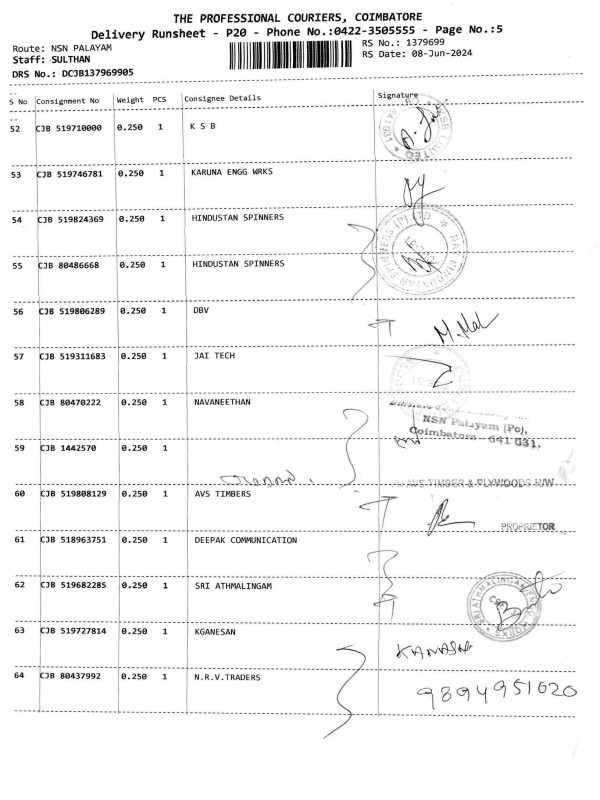 THE PROFESSIONAL COURIERS, COIMBATORE
Delivery Runsheet - P20 - Phone No.:0422-3505555 - Page No.:5
Route: NSN PALAYAM
RS No.: 1379699
Staff: SULTHAN
RS Date: 08-Jun-2024
DRS No.: DCJB137969905
S No Consignment No Weight PCS Consignee Details Signature
52 CJB 519710000 0.250 1 K S B
53 CJB 519746781 0.250 1 KARUNA ENGG WRKS
54 CJB 519824369 0.250 1 HINDUSTAN SPINNERS
55 CJB 80486668 0.250 1 HINDUSTAN SPINNERS
56 CJB 519806289 0.250 1 DBV
M. Mal
57 CJB 519311683 0.250 1 JAI TECH
58 CJB 80470222 0.250 1 NAVANEETHAN
NSN Palayam (Po),
Coimbatore - 641 031.
59 CJB 1442570 0.250 1
AVS TIMBER & PLYWOODS H/W
60 CJB 519808129 0.250 1 AVS TIMBERS
PROPRIETOR
61 CJB 518963751 0.250 1 DEEPAK COMMUNICATION
62 CJB 519682285 0.250 1 SRI ATHMALINGAM
63 CJB 519727814 0.250 1 KGANESAN
64 CJB 80437992 0.250 1 N.R.V.TRADERS
9894951020